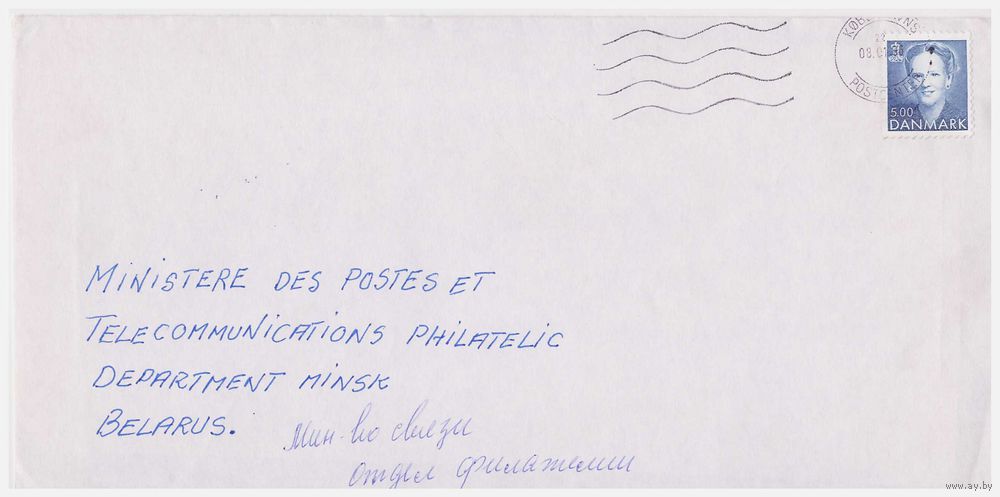 5.00
DANMARK
MINISTERE DES POSTES ET
TELECOMMUNICATIONS PHILATELIC
DEPARTMENT MINSK
BELARUS.
Мин-во связи
отдел филателии
www.ay.by